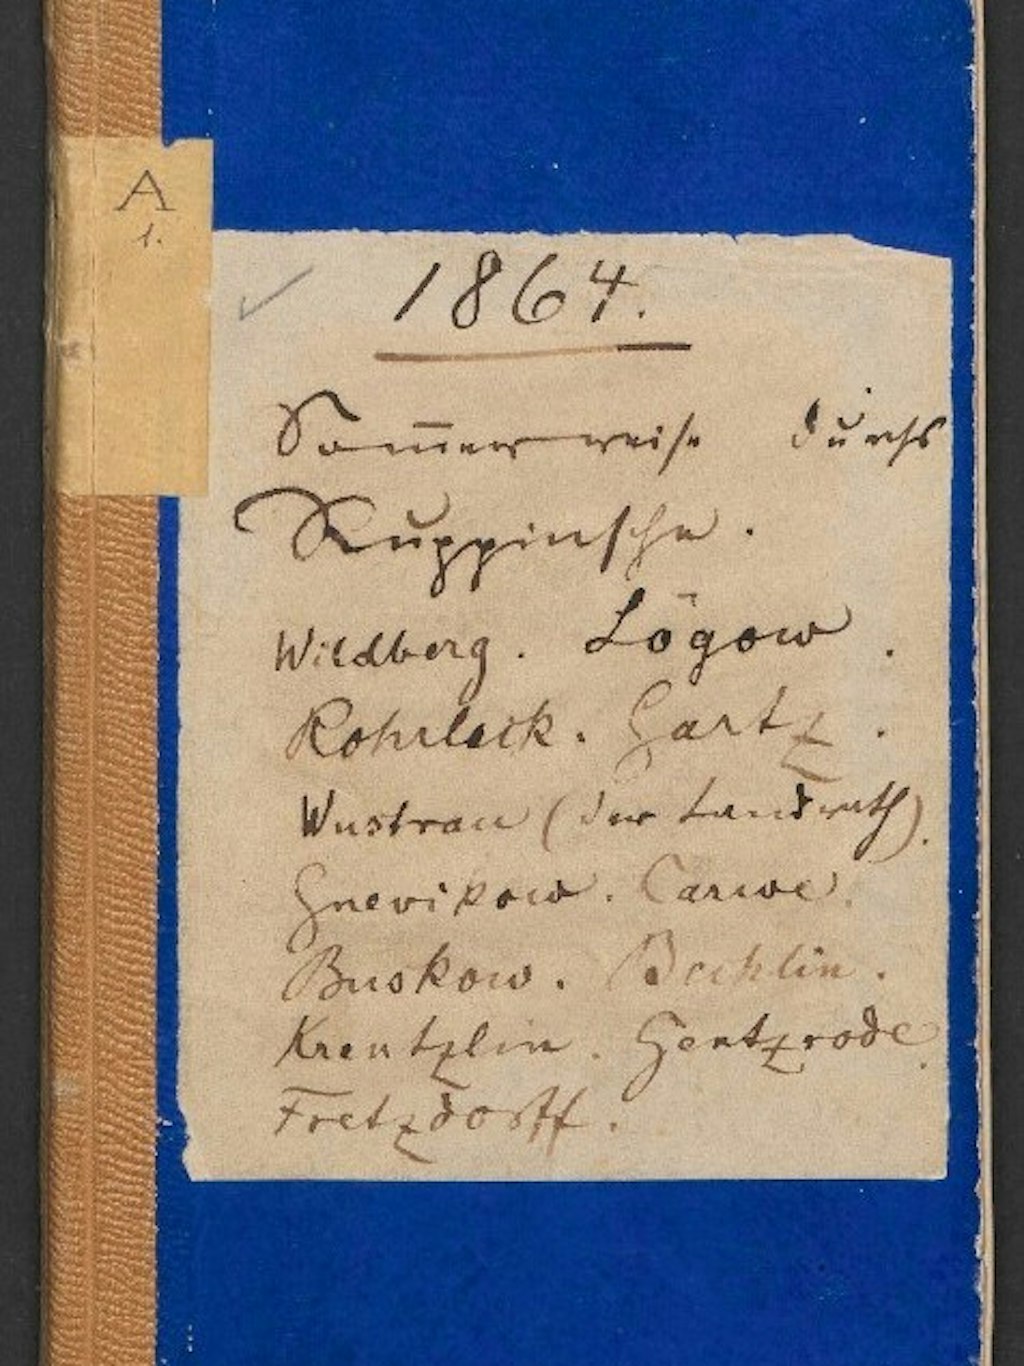 A
1.
1864.
Som̅erreise durchs
Ruppinsche.
Wildberg. Lögow.
Rohrlack. Gartz.
Wustrau (der Landrath).
Gnevikow. Carwe.
Buskow. Bechlin.
Krentzlin. Gentzrode.
Fretzdorff.